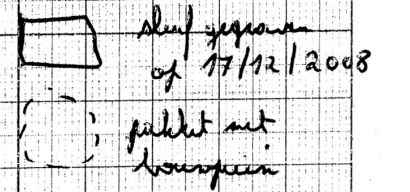 sleuf gegraven
op 17/12/2008
pakket met
bouwpuin